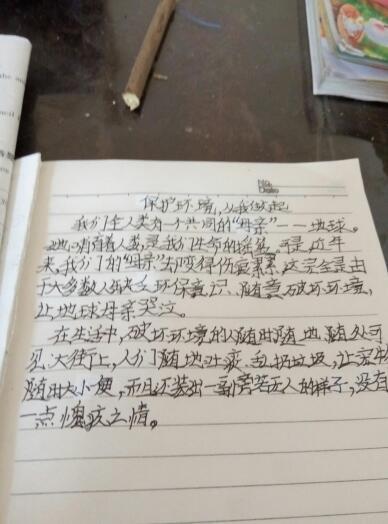 No.
Date
保护环境,从我做起
我们全人类有一个共同的“母亲”——地球。
她哺育着人类,是我们生命的摇篮。可是近年
来,我们的“母亲”却变得伤痕累累,这完全是由
于大多数人缺乏环保意识、随意破坏环境,
让地球母亲哭泣。
在生活中,破坏环境的人随时随地、随处可
见、大街上,人们随地吐痰、乱扔垃圾,让
随出大小便,而且还装出一副旁若无人的样子,没有
一点愧疚之情。